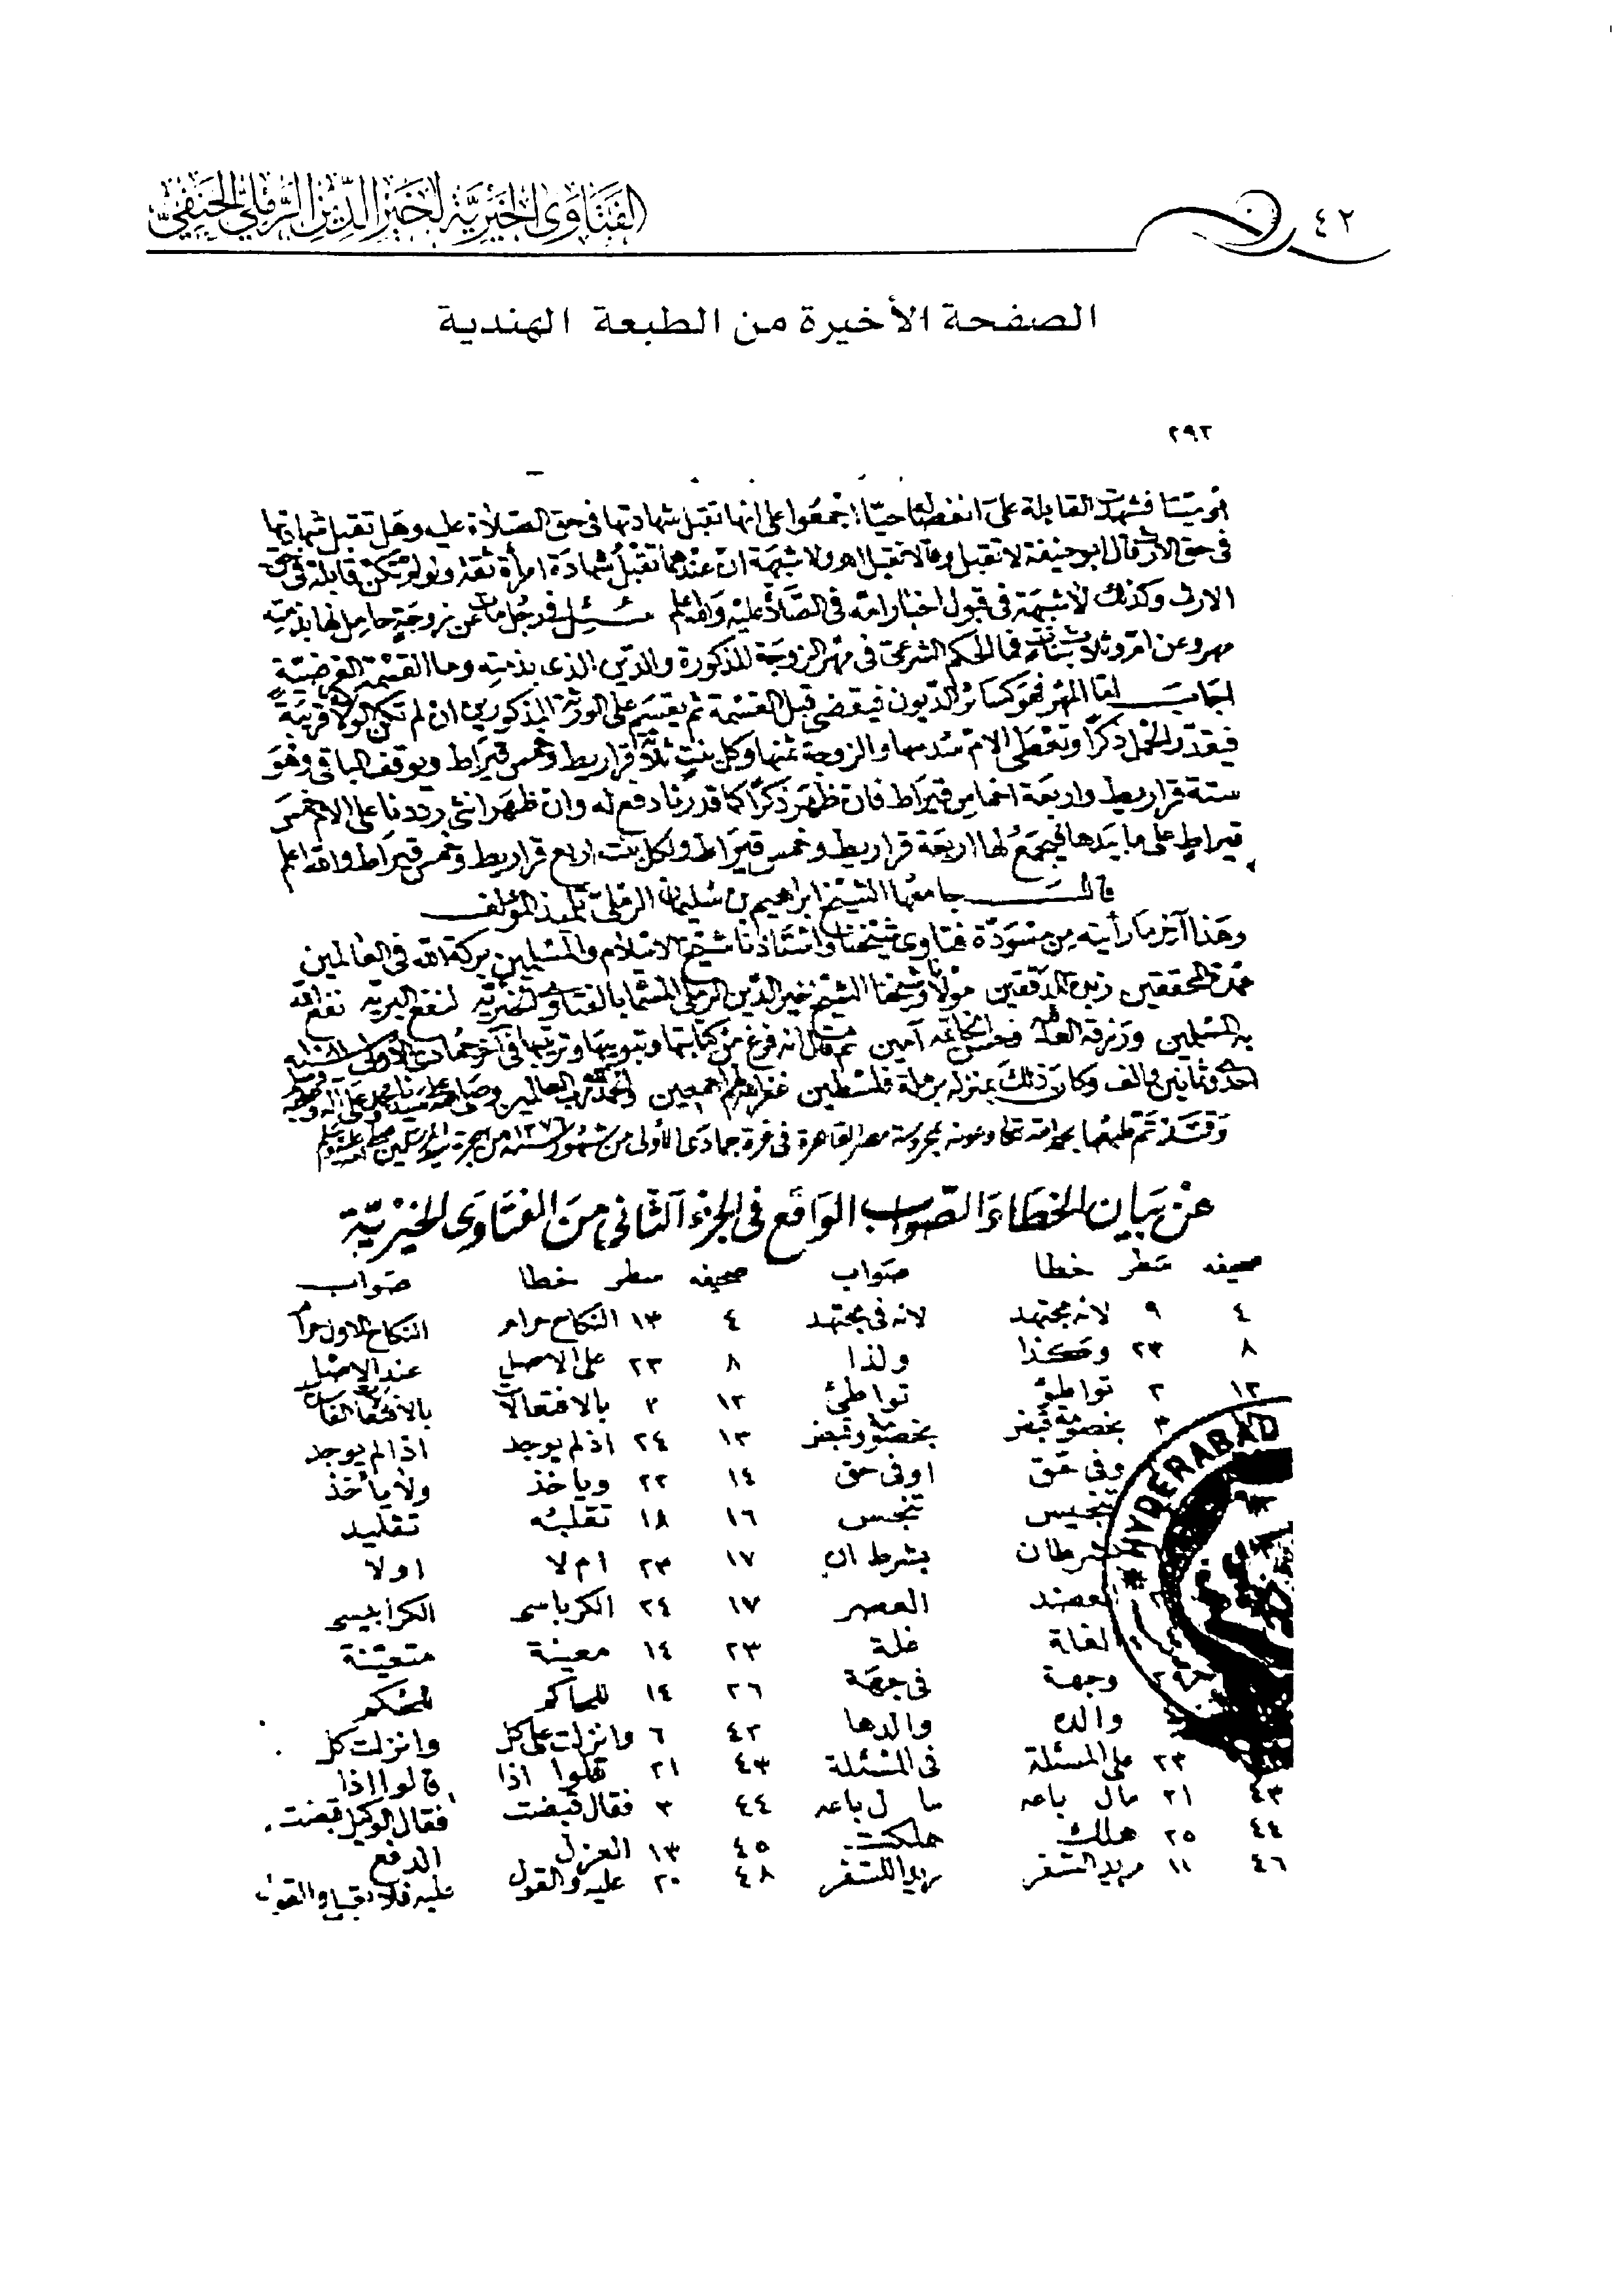 ٤٢
الفتاوى الخيرية لخير الدين الرملي الحنفي
الصفحة الأخيرة من الطبعة الهندية
٢٩٢
فشهدت القابلة على انفصاله حيا اجمعوا على انها تقبل شهادتها فى حق الصلاة عليه وهل تقبل شهادتها
فى حق الارث قال ابو حنيفة لا تقبل وقالا تقبل اهـ ولا شبهة ان عندهما تقبل شهادة امرأة ثقة ولو لم تكن قابلة فى حق
الارث وكذلك لا شبهة فى قبول اخبار امه فى الصلاة عليه والله اعلم سئل فى رجل مات عن زوجة حامل لها بذمته
مهر وعن ام وثلاث بنات فما الحكم الشرعى فى مهر الزوجة المذكورة والدين الذى بذمته وما القسمة الفرضية
اجاب اما المهر فهو كسائر الديون فيقضى قبل القسمة ثم يقسم على الورثة المذكورين ان لم تكن الولادة قريبة
فيقدر الحمل ذكرا وتعطى الام سدسها والزوجة ثمنها وكل بنت ثلاثة قراريط وخمس قيراط ويوقف الباقى وهو
ستة قراريط واربعة اخماس قيراط فان ظهر ذكرا كما قدرنا دفع له وان ظهر انثى رددنا على الام خمس
قيراط على ما بيدها فيجمع لها اربعة قراريط وخمس قيراط ولكل بنت اربع قراريط وخمس قيراط والله اعلم
قال جامعها الشيخ ابراهيم بن سليمان الرملى تلميذ المؤلف
وهذا آخر ما رأيته من مسودة فتاوى شيخنا واستاذنا شيخ الاسلام والمسلمين بركة الله فى العالمين
عمدة المحققين زين المدققين مولانا وشيخنا الشيخ خير الدين الرملى المسما بالفتاوى الخيرية لنفع البرية نفع الله
به المسلمين ورزقه وحسن الخاتمة آمين ثم قال انه فرغ من كتابتها وتبويبها وترتيبها فى آخر جمادى الاولى سنة
احدى وثمانين والف وكان ذلك بمنزله برملة فلسطين غفر الله لهم اجمعين والحمد لله رب العالمين وصلى الله على سيدنا محمد وعلى آله وصحبه
وقد تم طبعها بحمد الله تعالى وعونه بمحروسة مصر القاهرة فى غرة جمادى الأولى من شهور سنة ١٢٧٦ من هجرة سيد المرسلين صلى الله عليه وسلم
عن بيان الخطاء والصواب الواقع فى الجزء الثانى من الفتاوى الخيرية
صحيفه سطر خطا صواب صحيفه سطر خطا صواب
٤ ٩ لانه مجتهد لانه فى مجتهد ٤ ١٣ النكاح حرام النكاح الاول حرام
٨ ٢٣ وهكذا ولذا ٨ ٢٣ على الاصل عند الاصل
١٢ ٢ تواطؤ تواطئ ١٢ ٢ بالافتعالات
٣ ١٣ ٢٤ اذ لم يوجد اذا لم يوجد
وفى حق اوفى حق ١٤ ٢٢ وياخذ ولا يأخذ
تنجيس تنجس ١٦ ١٨ تقلبه تقليد
شرطان بشرط ان ١٧ ٢٣ ام لا اولا
العصر ١٧ ٢٤ الكرباسى الكرابيسى
لغلة غلة ٢٣ ١٤ معينة متعينة
وجهة فى جهة ٢٦ ١٤ للحاكم للمحكم
والده والدها ٤٢ ٦ وانزلت على كل وانزلت كل
٢٣ على المسئلة فى المسئلة ٤٣ ٢١ قلوا اذا قالوا اذا
٤٣ ٢١ مال باعه ٤٤ ٣ فقال قبضت فقال الوكيل قبضت
٤٤ ٢٥ هلك هلكت ٤٥ ١٣ العزل الدفع
٤٦ ١١ مريد السفر مريدا للسفر ٤٨ ٢٠ عليه والقول
HYDERABAD